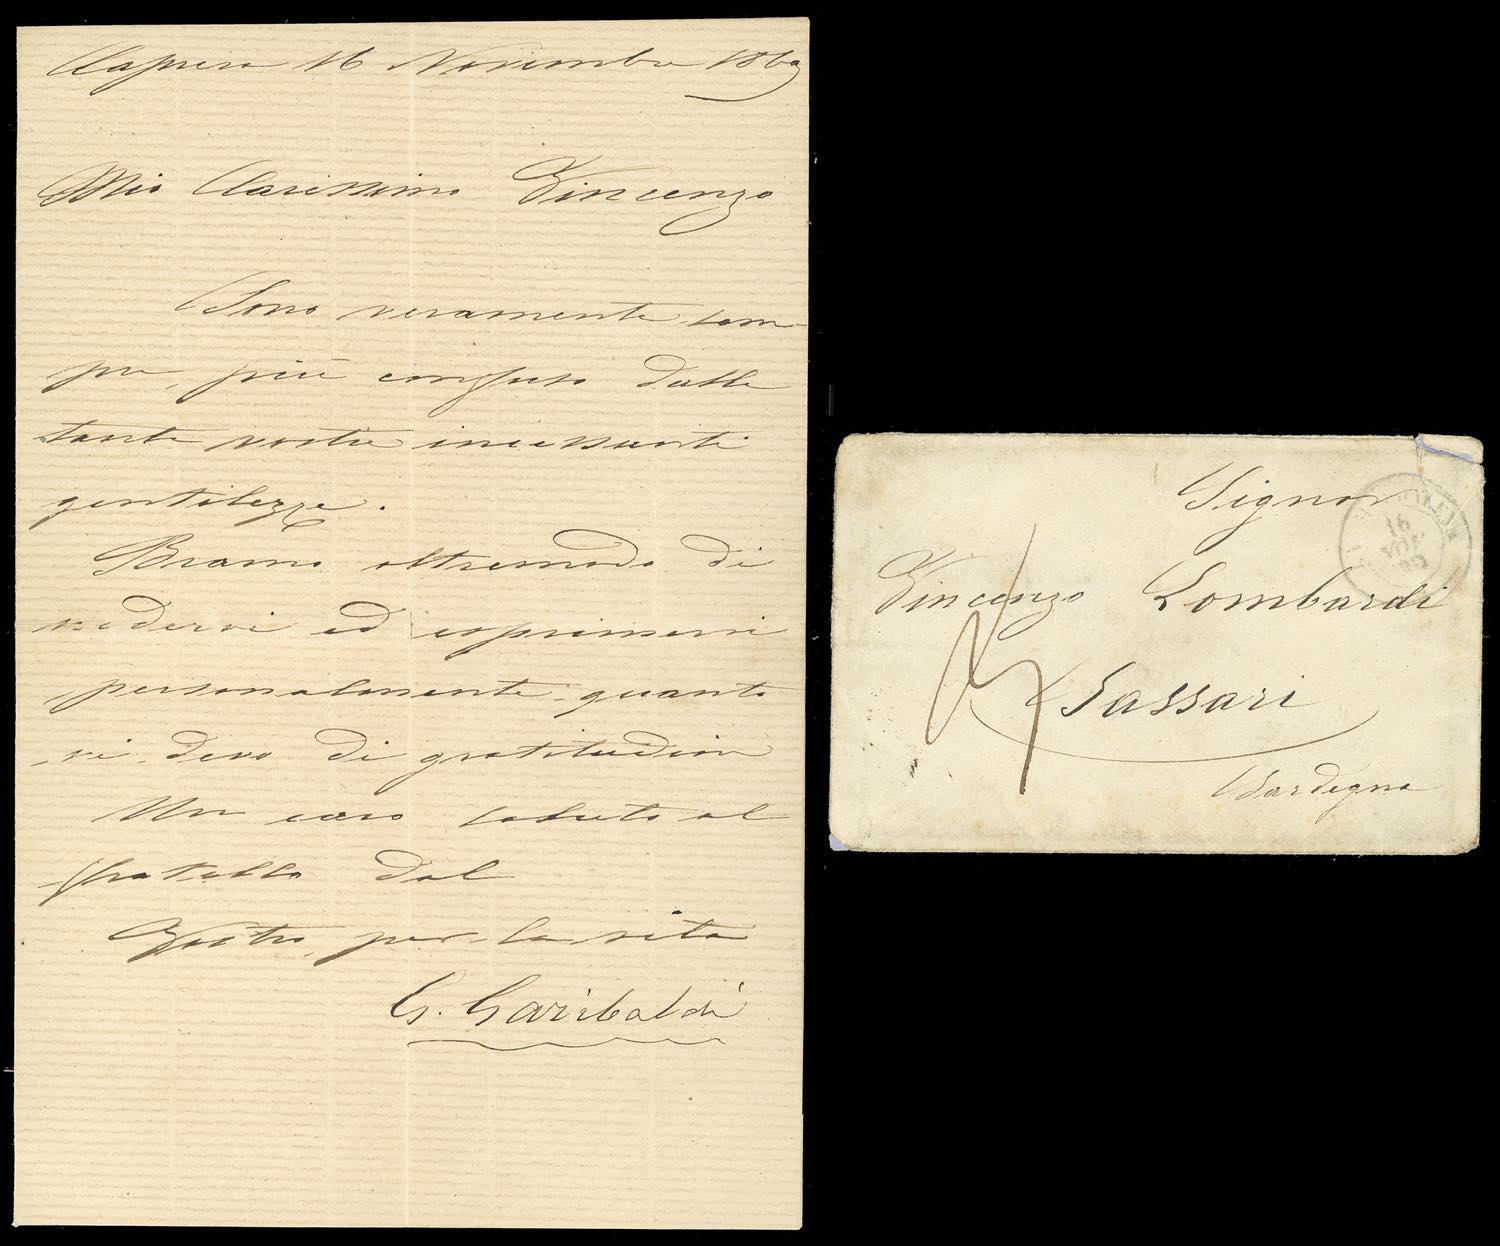 Caprera 16 Novembre 1869
Mio Carissimo Vincenzo
Sono veramente sem-
pre, più confuso dalle
tante vostre incessanti
gentilezze.
Bramo oltremodo di
vedervi ed esprimervi
personalmente quanto
vi devo di gratitudine
Un caro saluto al
fratello dal
Vostro per la vita
G. Garibaldi
Signor
Vincenzo Lombardi
Sassari
Sardegna
16
NOV